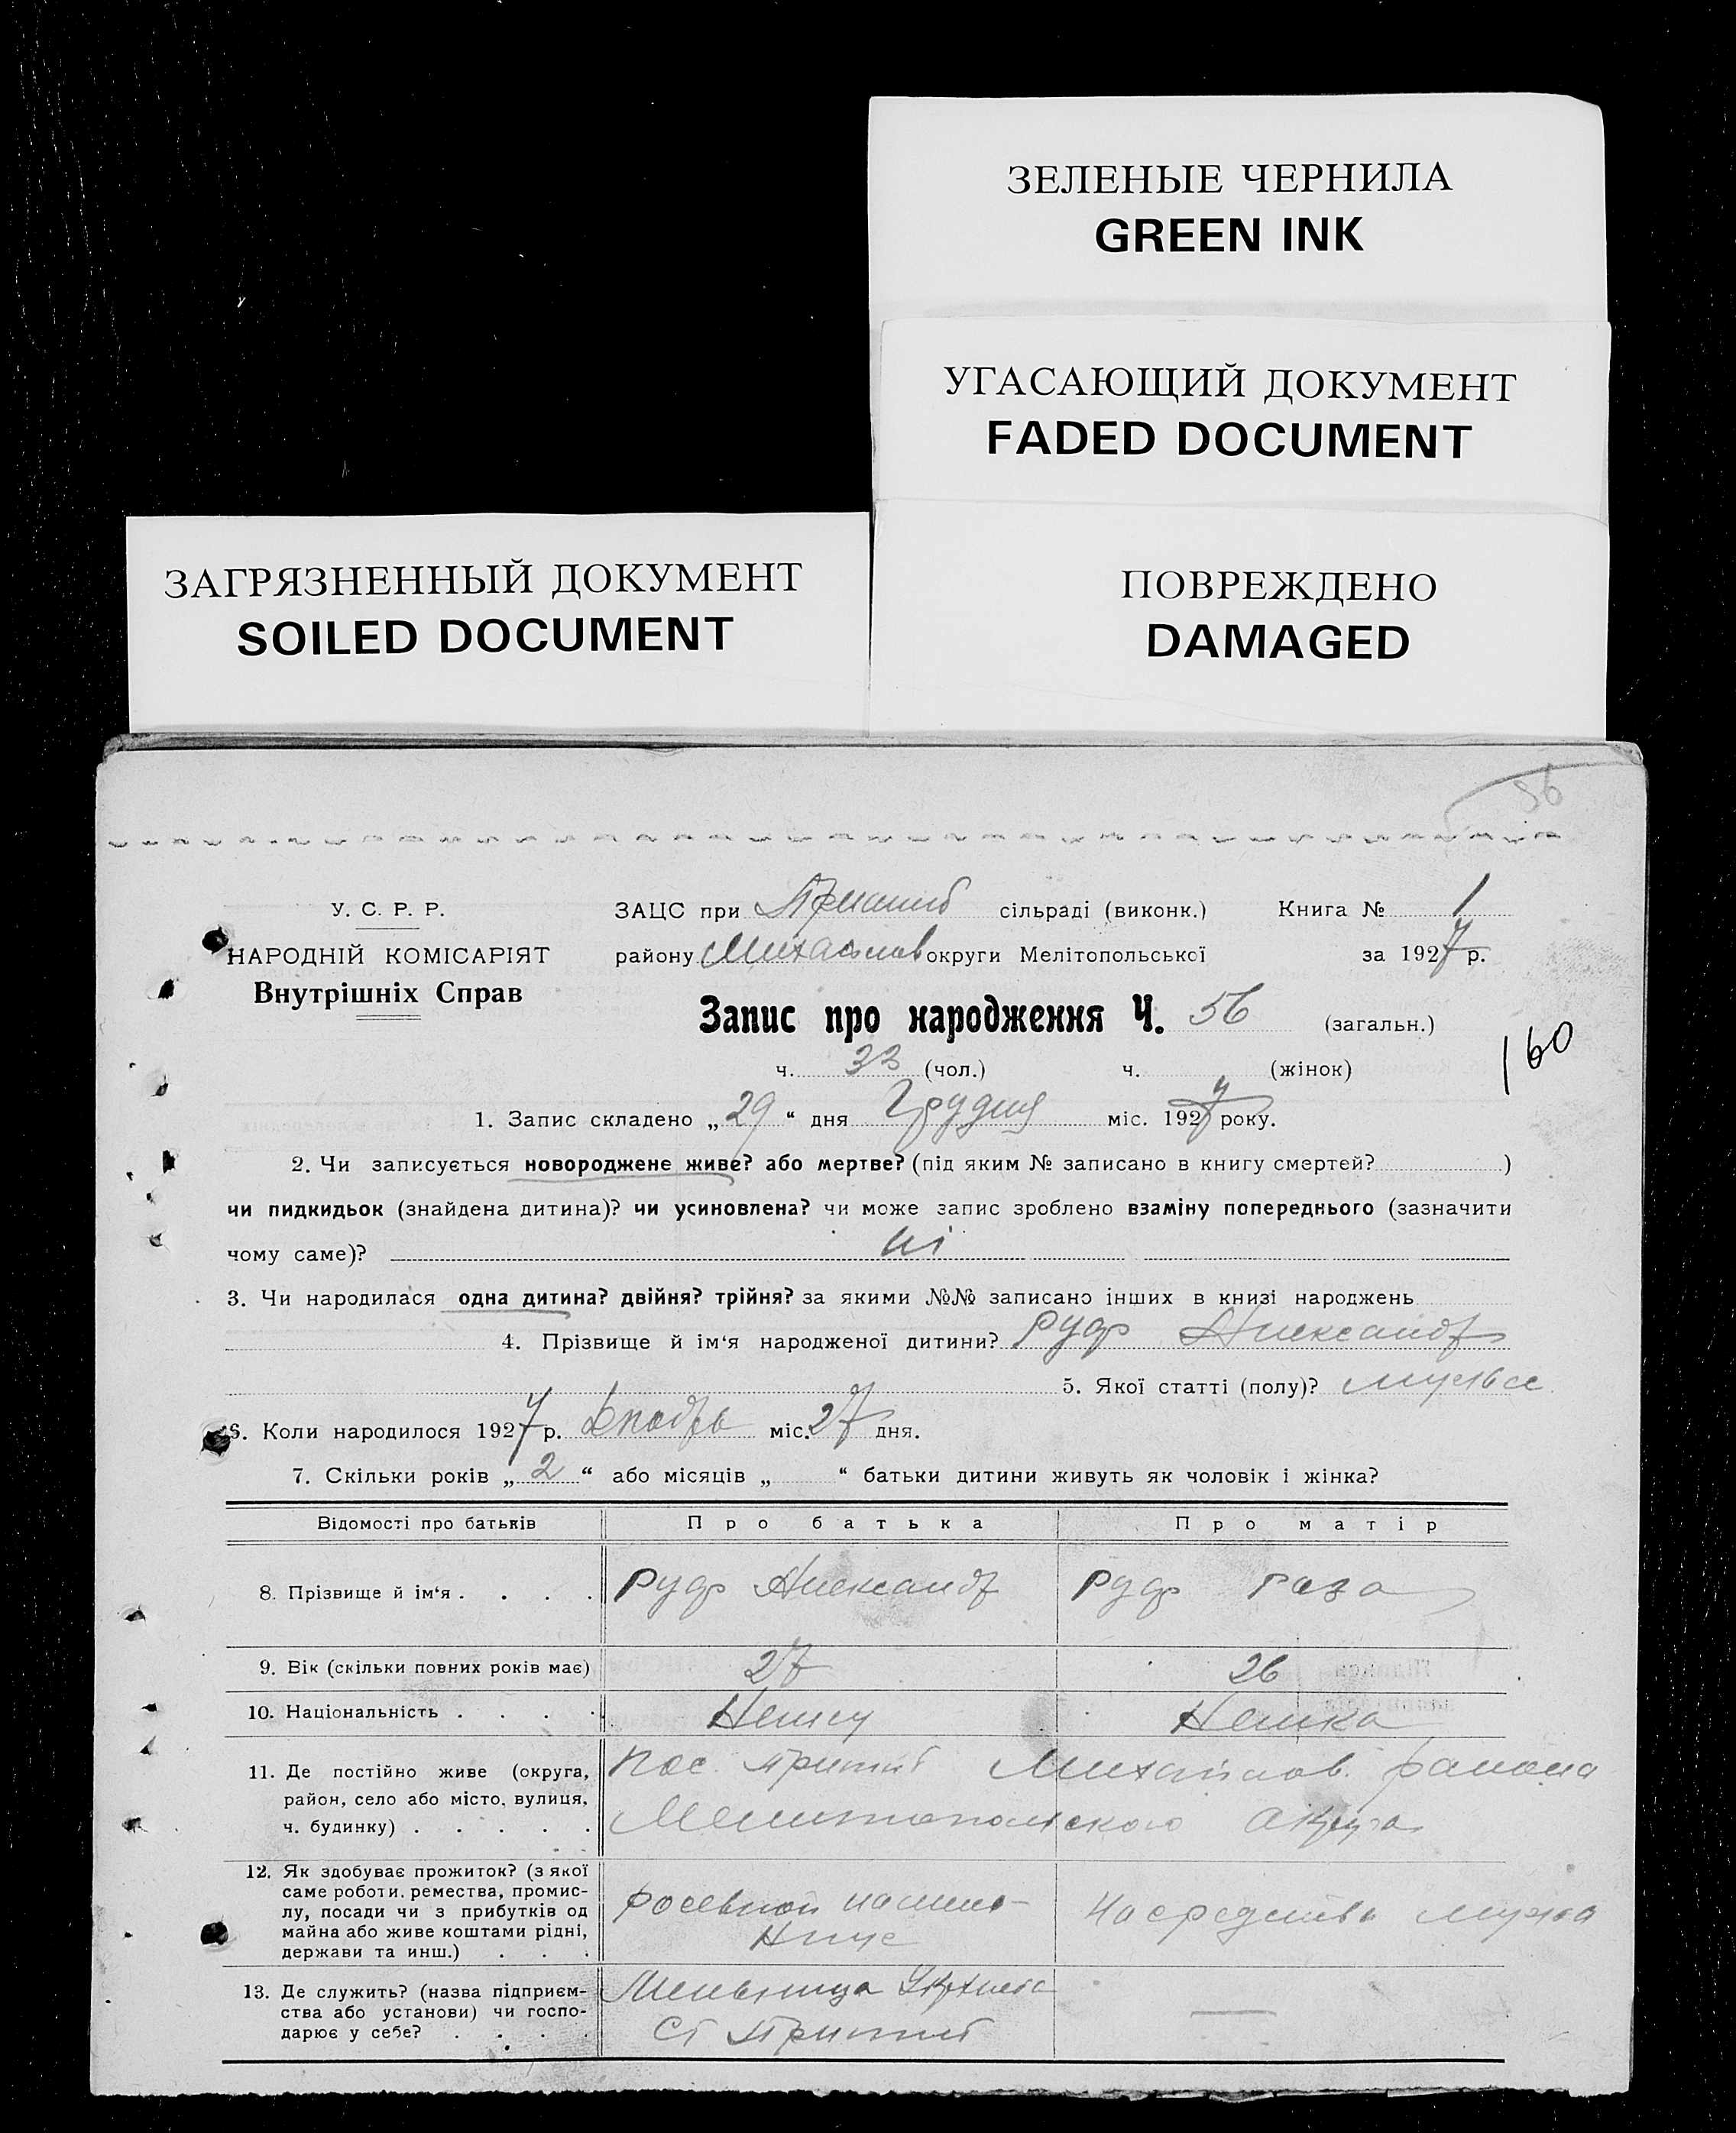 ЗЕЛЕНЫЕ ЧЕРНИЛА
GREEN INK
УГАСАЮЩИЙ ДОКУМЕНТ
FADED DOCUMENT
ЗАГРЯЗНЕННЫЙ ДОКУМЕНТ
SOILED DOCUMENT
ПОВРЕЖДЕНО
DAMAGED
56
У. С. Р. Р.
НАРОДНІЙ КОМІСАРІЯТ
Внутрішніх Справ
ЗАЦС при Пришиб сільраді (виконк.) Книга № 1
району Михайлов округи Мелітопольської за 1927 р.
Запис про народження Ч. 56 (загальн.)
160
ч. 33 (чол.) ч. (жінок)
1. Запис складено „29“ дня Грудня міс. 1927 року.
2. Чи записується новороджене живе? або мертве? (під яким № записано в книгу смертей? )
чи пидкидьок (знайдена дитина)? чи усиновлена? чи може запис зроблено взаміну попереднього (зазначити
чому саме)? ні
3. Чи народилася одна дитина? двійня? трійня? за якими №№ записано інших в книзі народжень
4. Прізвище й ім‘я народженої дитини? Руф Александр
5. Якої статті (полу)?
6. Коли народилося 1927 р. міс. 27 дня.
7. Скільки років „2“ або місяців „ “ батьки дитини живуть як чоловік і жінка?
Відомості про батьків Про батька Про матір
8. Прізвище й ім‘я . . . . Руф Александр Руф Роза
9. Вік (скільки повних років має) 27 26
10. Національність . . . . Немец Немка
11. Де постійно живе (округа,
район, село або місто, вулиця,
ч. будинку) . . . . .
Пос. Пришиб Михайлов. района
Мелитопольского округа
12. Як здобуває прожиток? (з якої
саме роботи, ремества, промис-
лу, посади чи з прибутків од
майна або живе коштами рідні,
держави та инш.) . . .
На средства мужа
13. Де служить? (назва підприєм-
ства або установи) чи госпо-
дарює у себе? . . . .
Мельница
Ст Пришиб
—